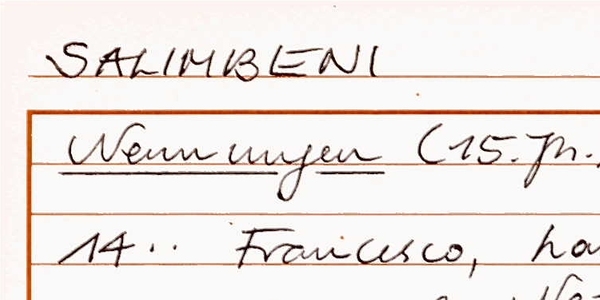 SALIMBENI
Nennungen (15. Jh.
14.. Francesco,